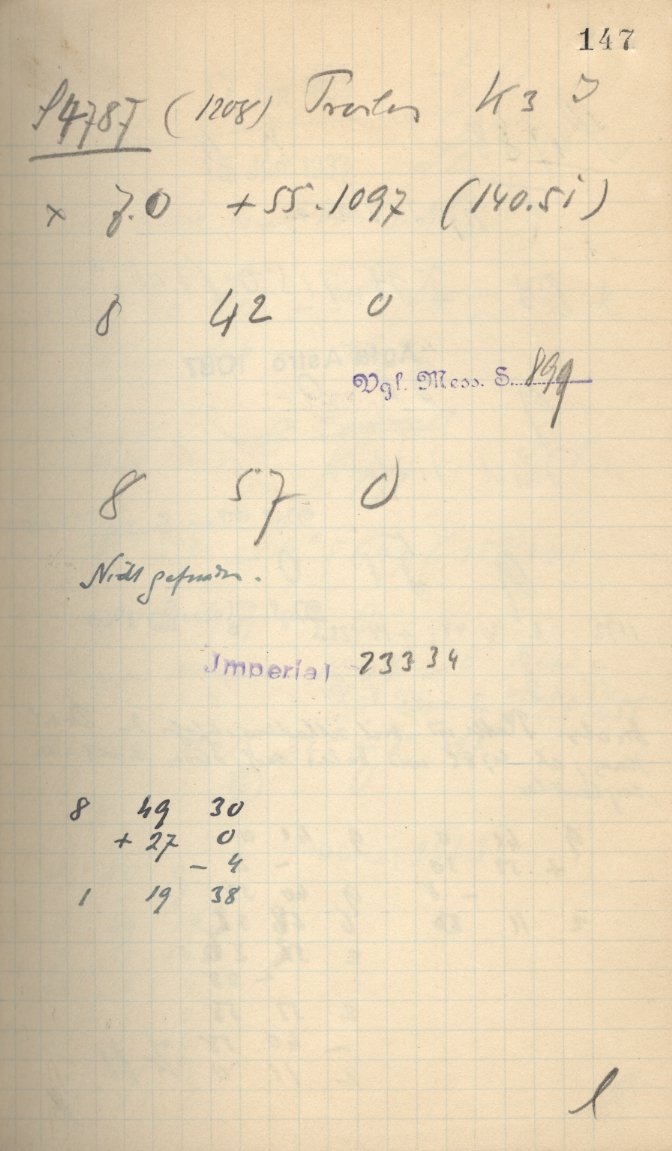 147
S4787 (1208) Troilus K3 J
x 7.0 +55.1097 (140.51)
8 42 0
Vgl. Mess. S. 899
8 57 0
Nicht gefunden.
Imperial 23334
8 49 30
+ 27 0
- 4
1 19 38
l